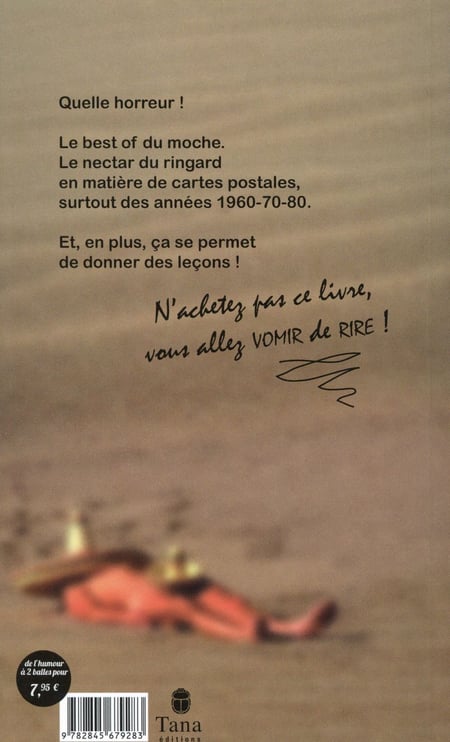 Quelle horreur !
Le best of du moche.
Le nectar du ringard
en matière de cartes postales,
surtout des années 1960-70-80.
Et, en plus, ça se permet
de donner des leçons !
N'achetez pas ce livre,
vous allez VOMIR de RIRE !
de l'humour
à 2 balles pour
7,95 €
9 782845 679283
Tana
éditions